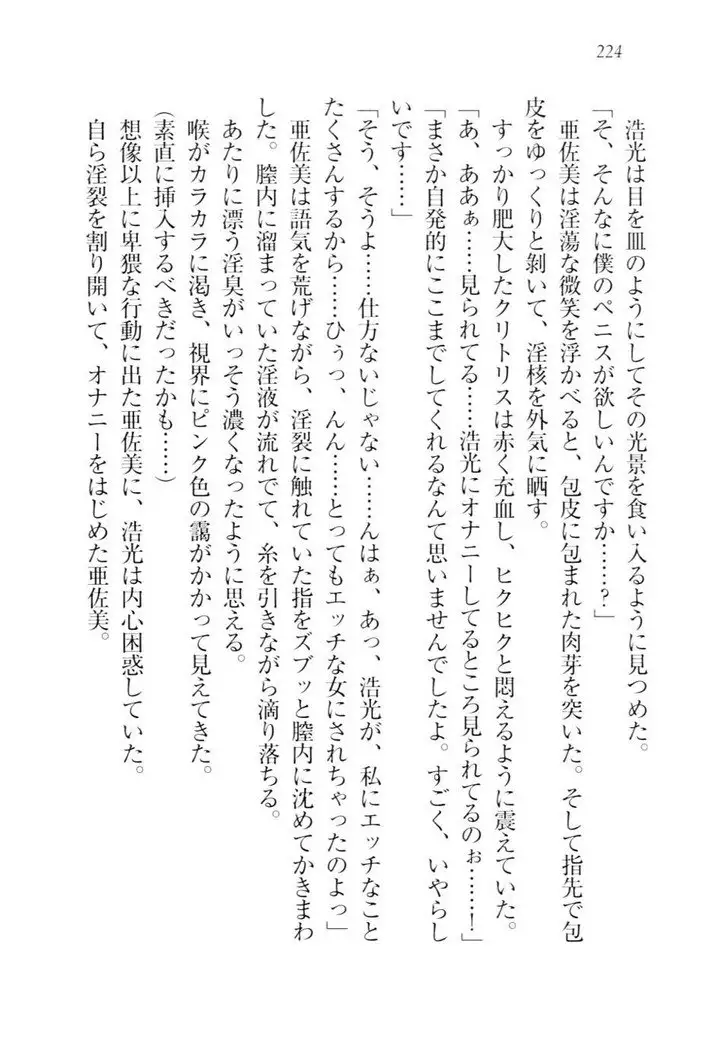 224
浩光は目を皿のようにしてその光景を食い入るように見つめた。
「そ、そんなに僕のペニスが欲しいんですか……?」
亜佐美は淫蕩な微笑を浮かべると、包皮に包まれた肉芽を突いた。そして指先で包
皮をゆっくりと剥いて、淫核を外気に晒す。
すっかり肥大したクリトリスは赤く充血し、ヒクヒクと悶えるように震えていた。
「あ、ああぁ……見られてる……浩光にオナニーしてるところ見られてるのぉ……!」
「まさか自発的にここまでしてくれるなんて思いませんでしたよ。すごく、いやらし
いです……」
「そう、そうよ……仕方ないじゃない……んはぁ、あっ、浩光が、私にエッチなこと
たくさんするから……ひぅっ、んん……とってもエッチな女にされちゃったのよっ」
亜佐美は語気を荒げながら、淫裂に触れていた指をズブッと膣内に沈めてかきまわ
した。膣内に溜まっていた淫液が流れでて、糸を引きながら滴り落ちる。
あたりに漂う淫臭がいっそう濃くなったように思える。
喉がカラカラに渇き、視界にピンク色の靄がかかって見えてきた。
(素直に挿入するべきだったかも……)
想像以上に卑猥な行動に出た亜佐美に、浩光は内心困惑していた。
自ら淫裂を割り開いて、オナニーをはじめた亜佐美。